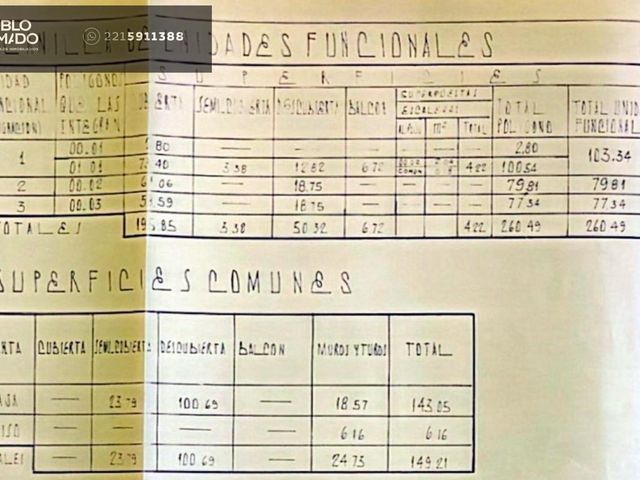 BLO
MADO
221 5911388
NILLA DE UNIDADES FUNCIONALES
SUPERFICIES
POLIGONO QUE LAS INTEGRAN SEMI CUBIERTA DESCUBIERTA BALCON SUPERPUESTAS ESCALERAS M² TOTAL TOTAL POLIGONO TOTAL UNID FUNCIONAL
1 00.01 80 — — — — — — 2.80 103.34
01 01 40 3.38 12.82 6.72 4.22 100.54
2 00.02 06 — 18.75 — — — — 79.81 79.81
3 00.03 59 — 18.75 — — — — 77.34 77.34
TOTALES 85 3.38 50.32 6.72 4.22 260.49 260.49
SUPERFICIES COMUNES
CUBIERTA SEMICUBIERTA DESCUBIERTA BALCON MUROS Y TUBOS TOTAL
AJA — 23.79 100.69 — 18.57 143.05
ISO — — — — 6.16 6.16
ALES — 23.79 100.69 — 24.73 149.21